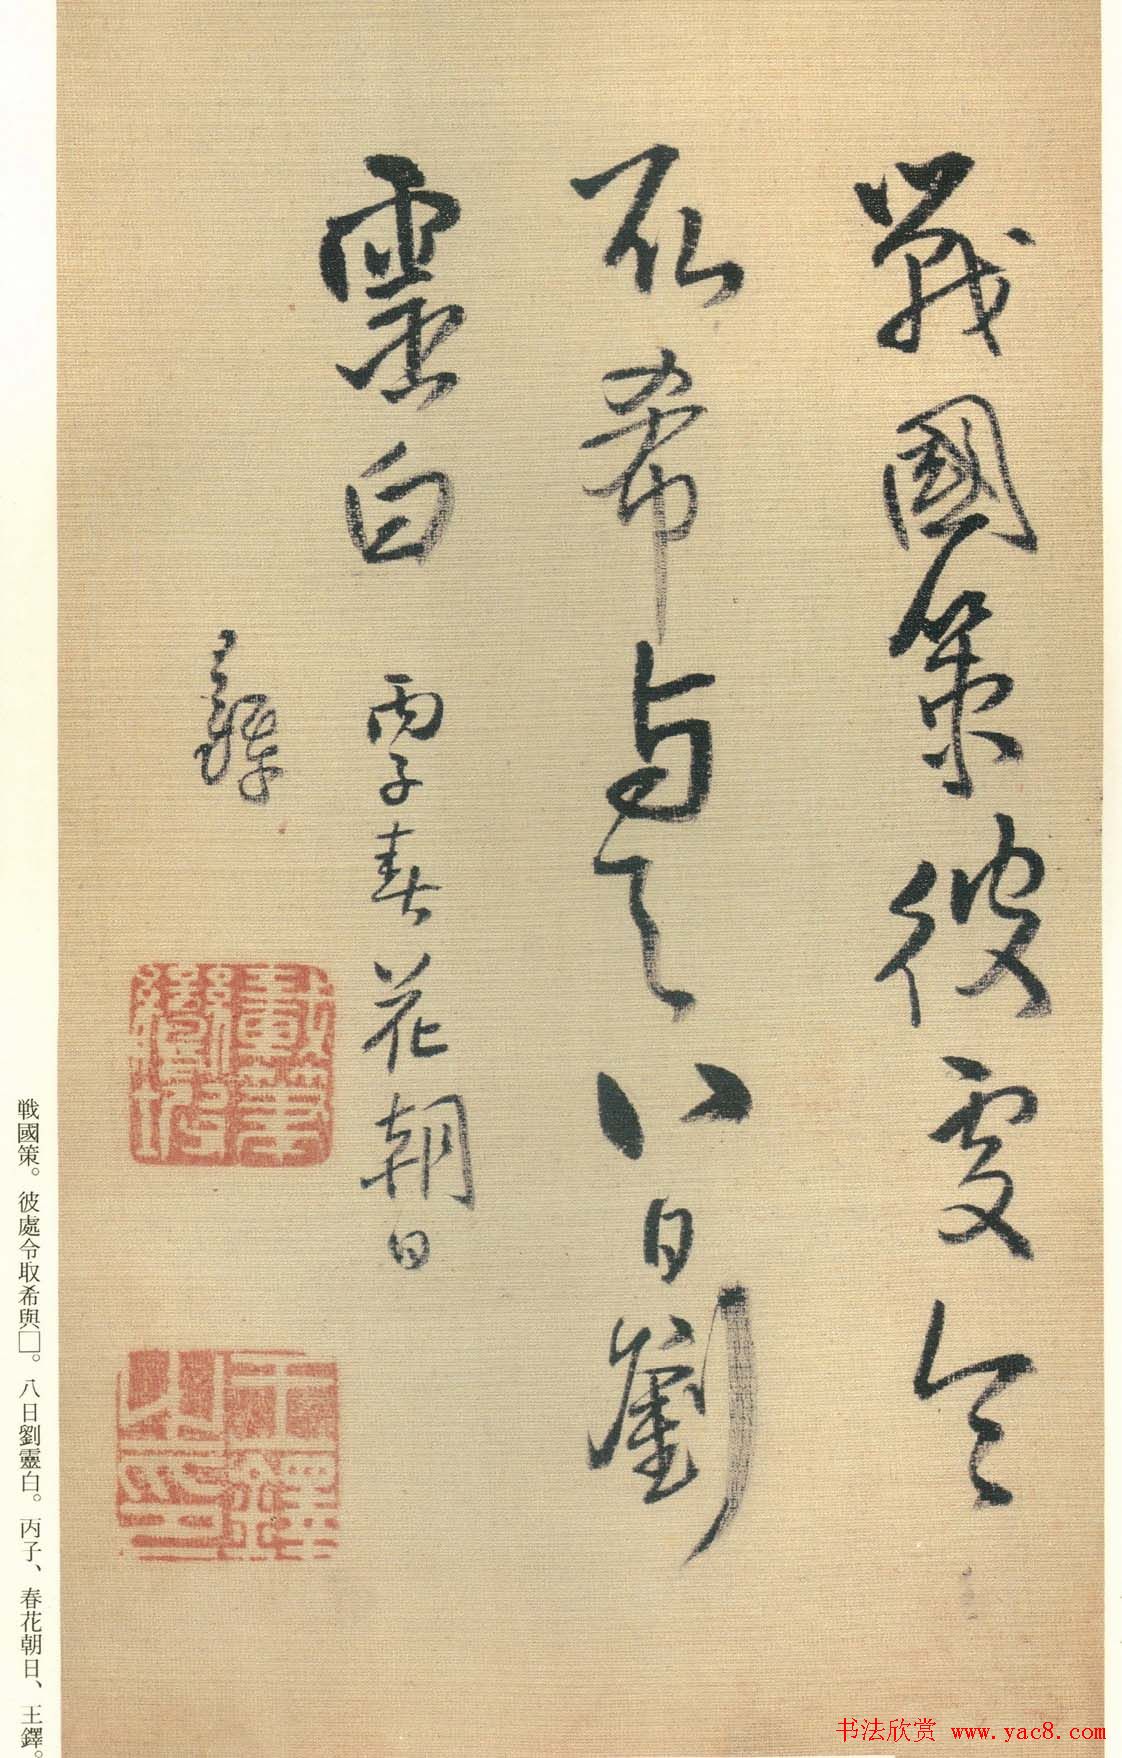 戰國策彼處令
取希與之八日劉
靈白
丙子春花朝日
王鐸
王鐸之印
戦國策。彼處令取希與□。八日劉靈白。丙子、春花朝日、王鐸。
书法欣赏 www.yac8.com